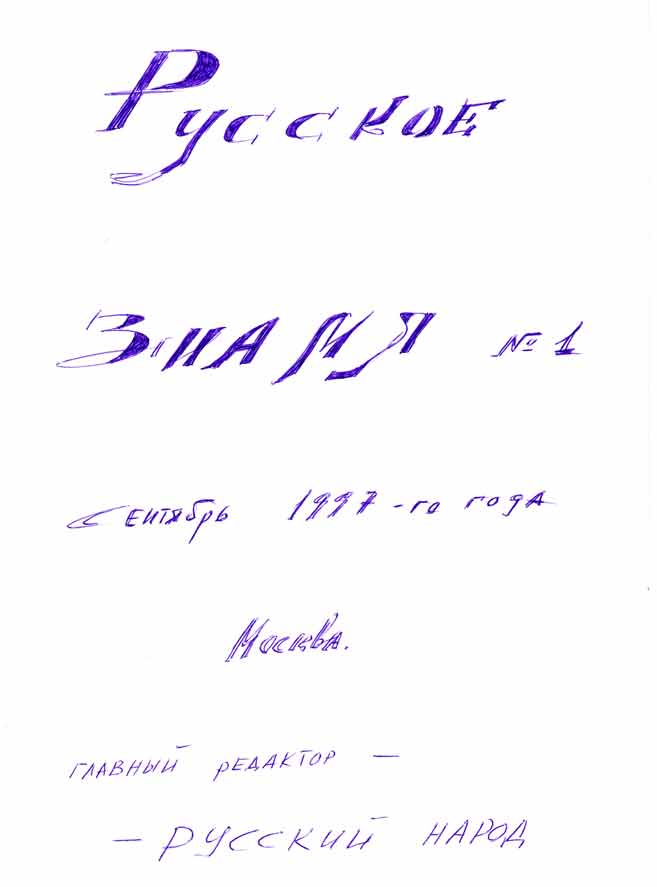 Русское
Знамя № 1
Сентябрь 1997-го года
Москва.
главный редактор —
— Русский народ